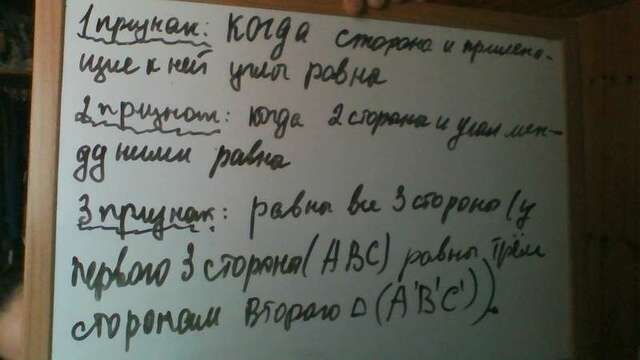 1 признак: когда сторона и прилежа-
щие к ней углы равна
2 признак: когда 2 сторона и угол меж-
ду ними равна
3 признак: равны все 3 стороны (у
первого 3 стороны (ABC) равны трём
сторонам второго △ (A'B'C')).